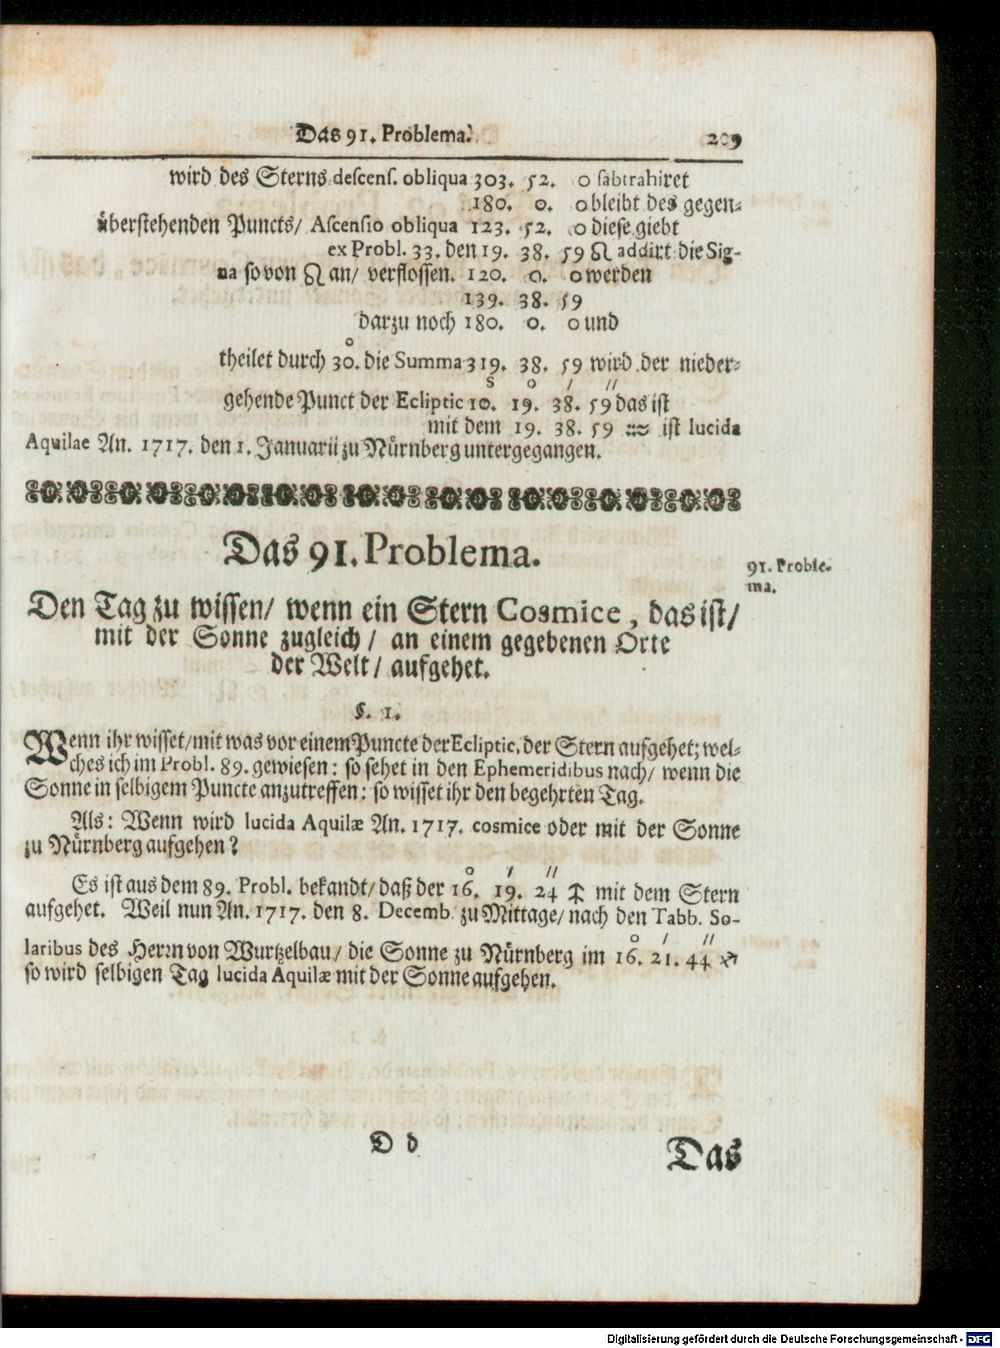 Das 91. Problema. 209
wird des Sterns descens. obliqua 303. 52. 0 sabtrahiret
180. 0. 0 bleibt des gegen-
überstehenden Puncts/ Ascensio obliqua 123. 52. 0 diese giebt
ex Probl. 33. den 19. 38. 59 ♌ addirt die Sig-
na so von ♌ an/ verflossen. 120. 0. 0 werden
139. 38. 59
darzu noch 180. 0. 0 und
theilet durch 30.° die Summa 319. 38. 59 wird der nieder-
S o ′ ″
gehende Punct der Ecliptic 10. 19. 38. 59 das ist
mit dem 19. 38. 59 ♒ ist lucida
Aquilae An. 1717. den 1. Januarii zu Nürnberg untergegangen.
Das 91. Problema.
91. Proble-
ma.
Den Tag zu wissen/ wenn ein Stern Cosmice, das ist/
mit der Sonne zugleich/ an einem gegebenen Orte
der Welt/ aufgehet.
§. 1.
Wenn ihr wisset/ mit was vor einem Puncte der Ecliptic, der Stern aufgehet; wel-
ches ich im Probl. 89. gewiesen: so sehet in den Ephemeridibus nach/ wenn die
Sonne in selbigem Puncte anzutreffen: so wisset ihr den begehrten Tag.
Als: Wenn wird lucida Aquilæ An. 1717. cosmice oder mit der Sonne
zu Nürnberg aufgehen?
o ′ ″
Es ist aus dem 89. Probl. bekandt/ daß der 16. 19. 24 ♐ mit dem Stern
aufgehet. Weil nun An. 1717. den 8. Decemb. zu Mittage/ nach den Tabb. So-
o ′ ″
laribus des Herrn von Wurtzelbau/ die Sonne zu Nürnberg im 16. 21. 44 ♐
so wird selbigen Tag lucida Aquilæ mit der Sonne aufgehen.
D d
Das
Digitalisierung gefördert durch die Deutsche Forschungsgemeinschaft - DFG